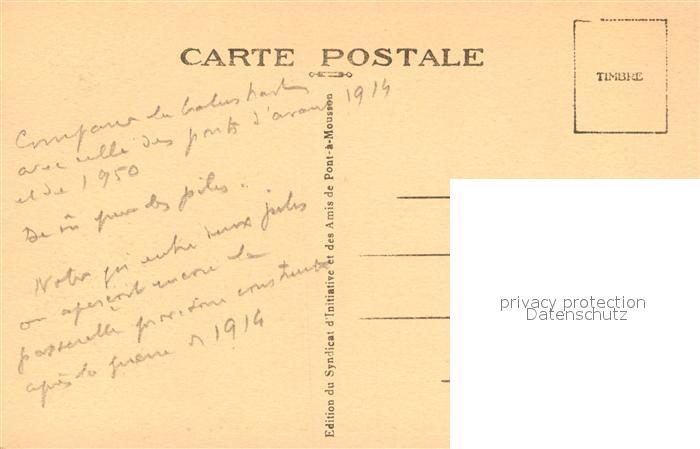 CARTE POSTALE
TIMBRE
Comparer la balustrade
avec celle des ponts d'avant 1914
et de 1950
De m̂ pour les piles..
Noter qu'entre deux piles
on aperçoit encore la
passerelle provisoire construite
après la guerre d 1914
Edition du Syndicat d'Initiative et des Amis de Pont-à-Mousson
privacy protection
Datenschutz